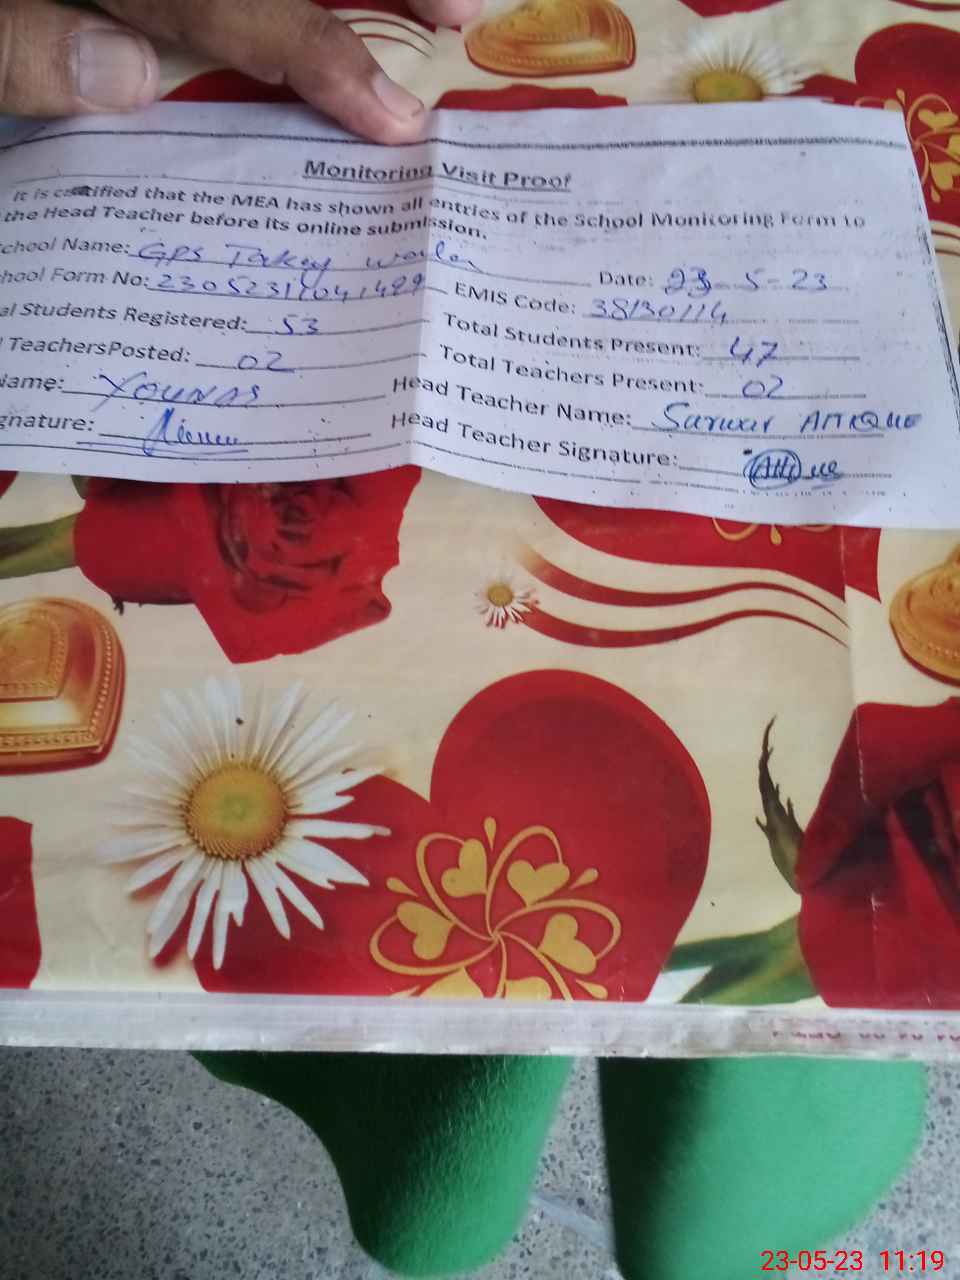 Monitoring Visit Proof
It is certified that the MEA has shown all entries of the School Monitoring Form to
the Head Teacher before its online submission.
chool Name: GPS Takey Date: 23-5-23
hool Form No: EMIS Code: 38130114
al Students Registered: 53 Total Students Present: 47
TeachersPosted: 02 Total Teachers Present: 02
Name: YOUNAS Head Teacher Name: Sarwar ATTIQUE
gnature: Head Teacher Signature:
23-05-23 11:19